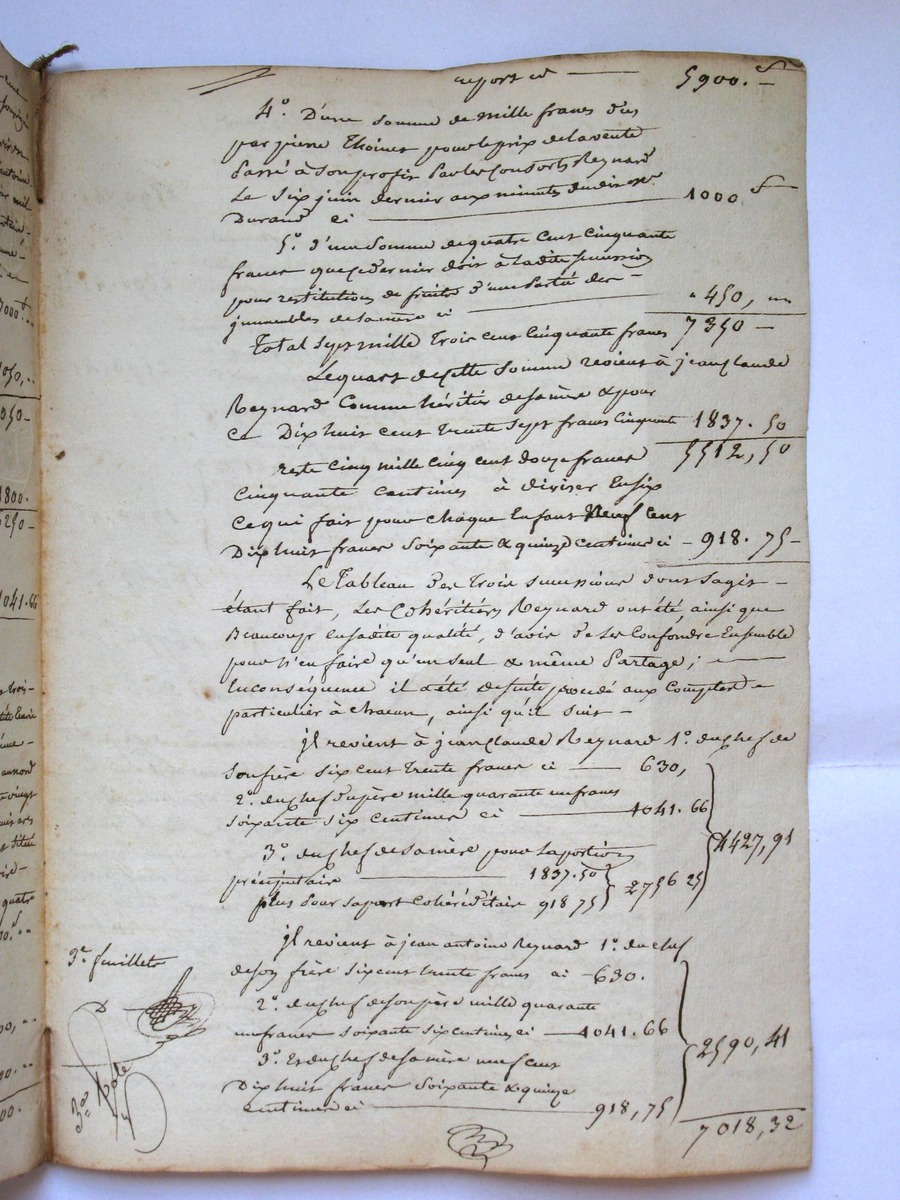 report ci — 5900. f —
4º. D'une somme de mille francs dus
par pierre Thoinet pour le prix de la vente
Passé à son profit Par les Consorts Reynard
Le six juin dernier aux minutes dudit Me.
Durand ci — 1000 f
5º. d'une somme de quatre cent cinquante
francs que ce dernier doit à ladite succession
pour restitutions de fruits d'une Partie des —
immeubles de sa mère ci — 450, "
Total sept mille Trois cent Cinquante francs 7350 —
Le quart de cette somme revient à jean Claude
Reynard Comme héritier de sa mère & pour
Ce Dix huit cent trente sept francs Cinquante 1837. 50
reste Cinq mille Cinq cent douze francs 5512, 50
cinquante centimes à diviser En six
Ce qui fait pour Chaque Enfant Neuf Cent
Dix huit francs Soixante & quinze centimes ci — 918. 75 —
Le Tableau des trois successions dont s'agit —
étant fait, Les Cohéritiers Reynard ont été, ainsi que
Beaucoup en ladite qualité, d'avis de Les Confondre Ensemble
pour n'en faire qu'un seul & même Partage; —
En conséquence il a été de suite procédé aux Comptes
particulier à chacun, ainsi qu'il suit —
il revient à jean Claude Reynard 1º. du chef de
son frère six cent trente francs ci — 630,
2º. du chef du père mille quarante un francs
soixante six centimes ci — 1041. 66
4427, 91
3º. du chef de sa mère pour la portion
préciputaire — 1837. 50
2756 25
plus Pour sa part Cohéréditaire 918 75
il revient à jean antoine Reynard 1º. du chef
de son frère six cent trente francs ci — 630.
2º. du chef de son père mille quarante
un francs soixante six centimes ci — 1041. 66
2590, 41
3º. Et du chef de sa mère neuf cent
Dix huit francs Soixante & quinze
centimes ci — 918, 75
7018, 32
3e. feuillets
D
3e Rôle